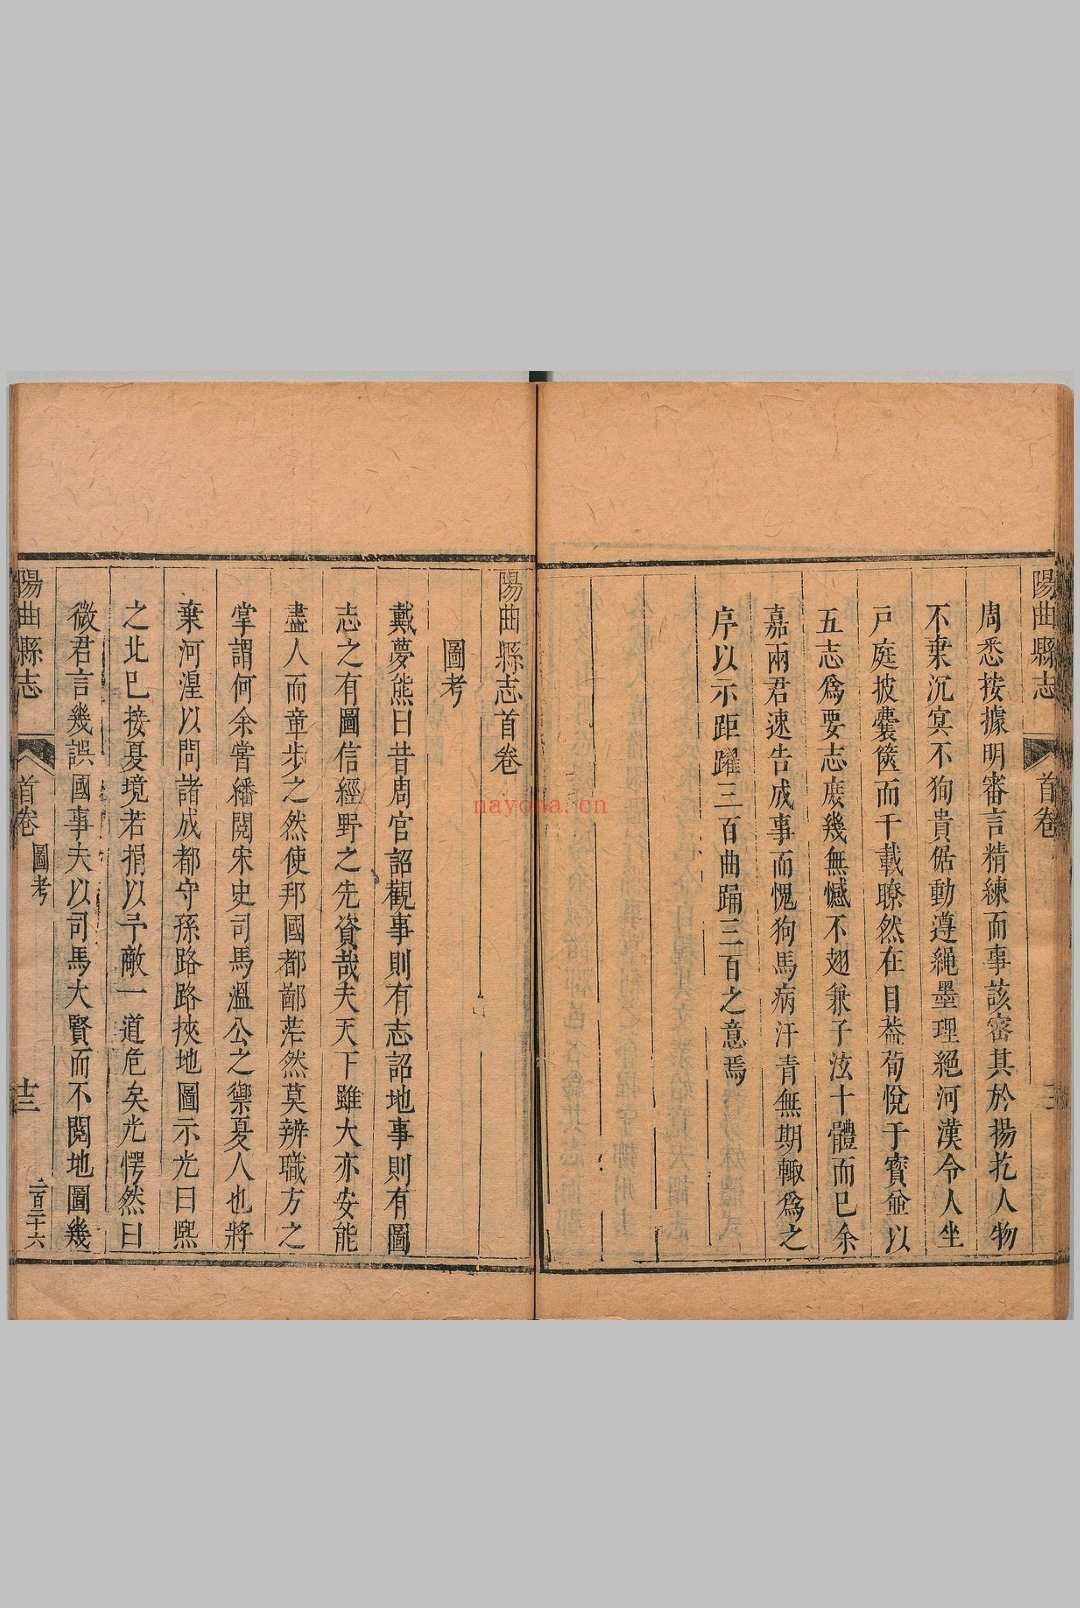 陽曲縣志
首卷
周悉按據明審言精練而事該審其於揚扢人物
不棄沉冥不狥貴倨動遵繩墨理絕河漢令人坐
戸庭披囊篋而千載瞭然在目葢荀悅于寳並以
五志爲要志庶幾無憾不翅兼子泫十體而已余
嘉兩君速告成事而愧狗馬病汗青無期輙爲之
序以示距躍三百曲踊三百之意焉
陽曲縣志首卷
圖考
戴夢熊曰昔周官詔觀事則有志詔地事則有圖
志之有圖信經野之先資哉夫天下雖大亦安能
盡人而章步之然使邦國都鄙茫然莫辨職方之
掌謂何余嘗繙閱宋史司馬溫公之禦夏人也將
棄河湟以問諸成都守孫路路挾地圖示光曰熙
之北巳接夏境若捐以予敵一道危矣光愕然曰
微君言幾誤國事夫以司馬大賢而不閱地圖幾
陽曲縣志
首卷
圖考
十三
二百三十六
nayona.cn